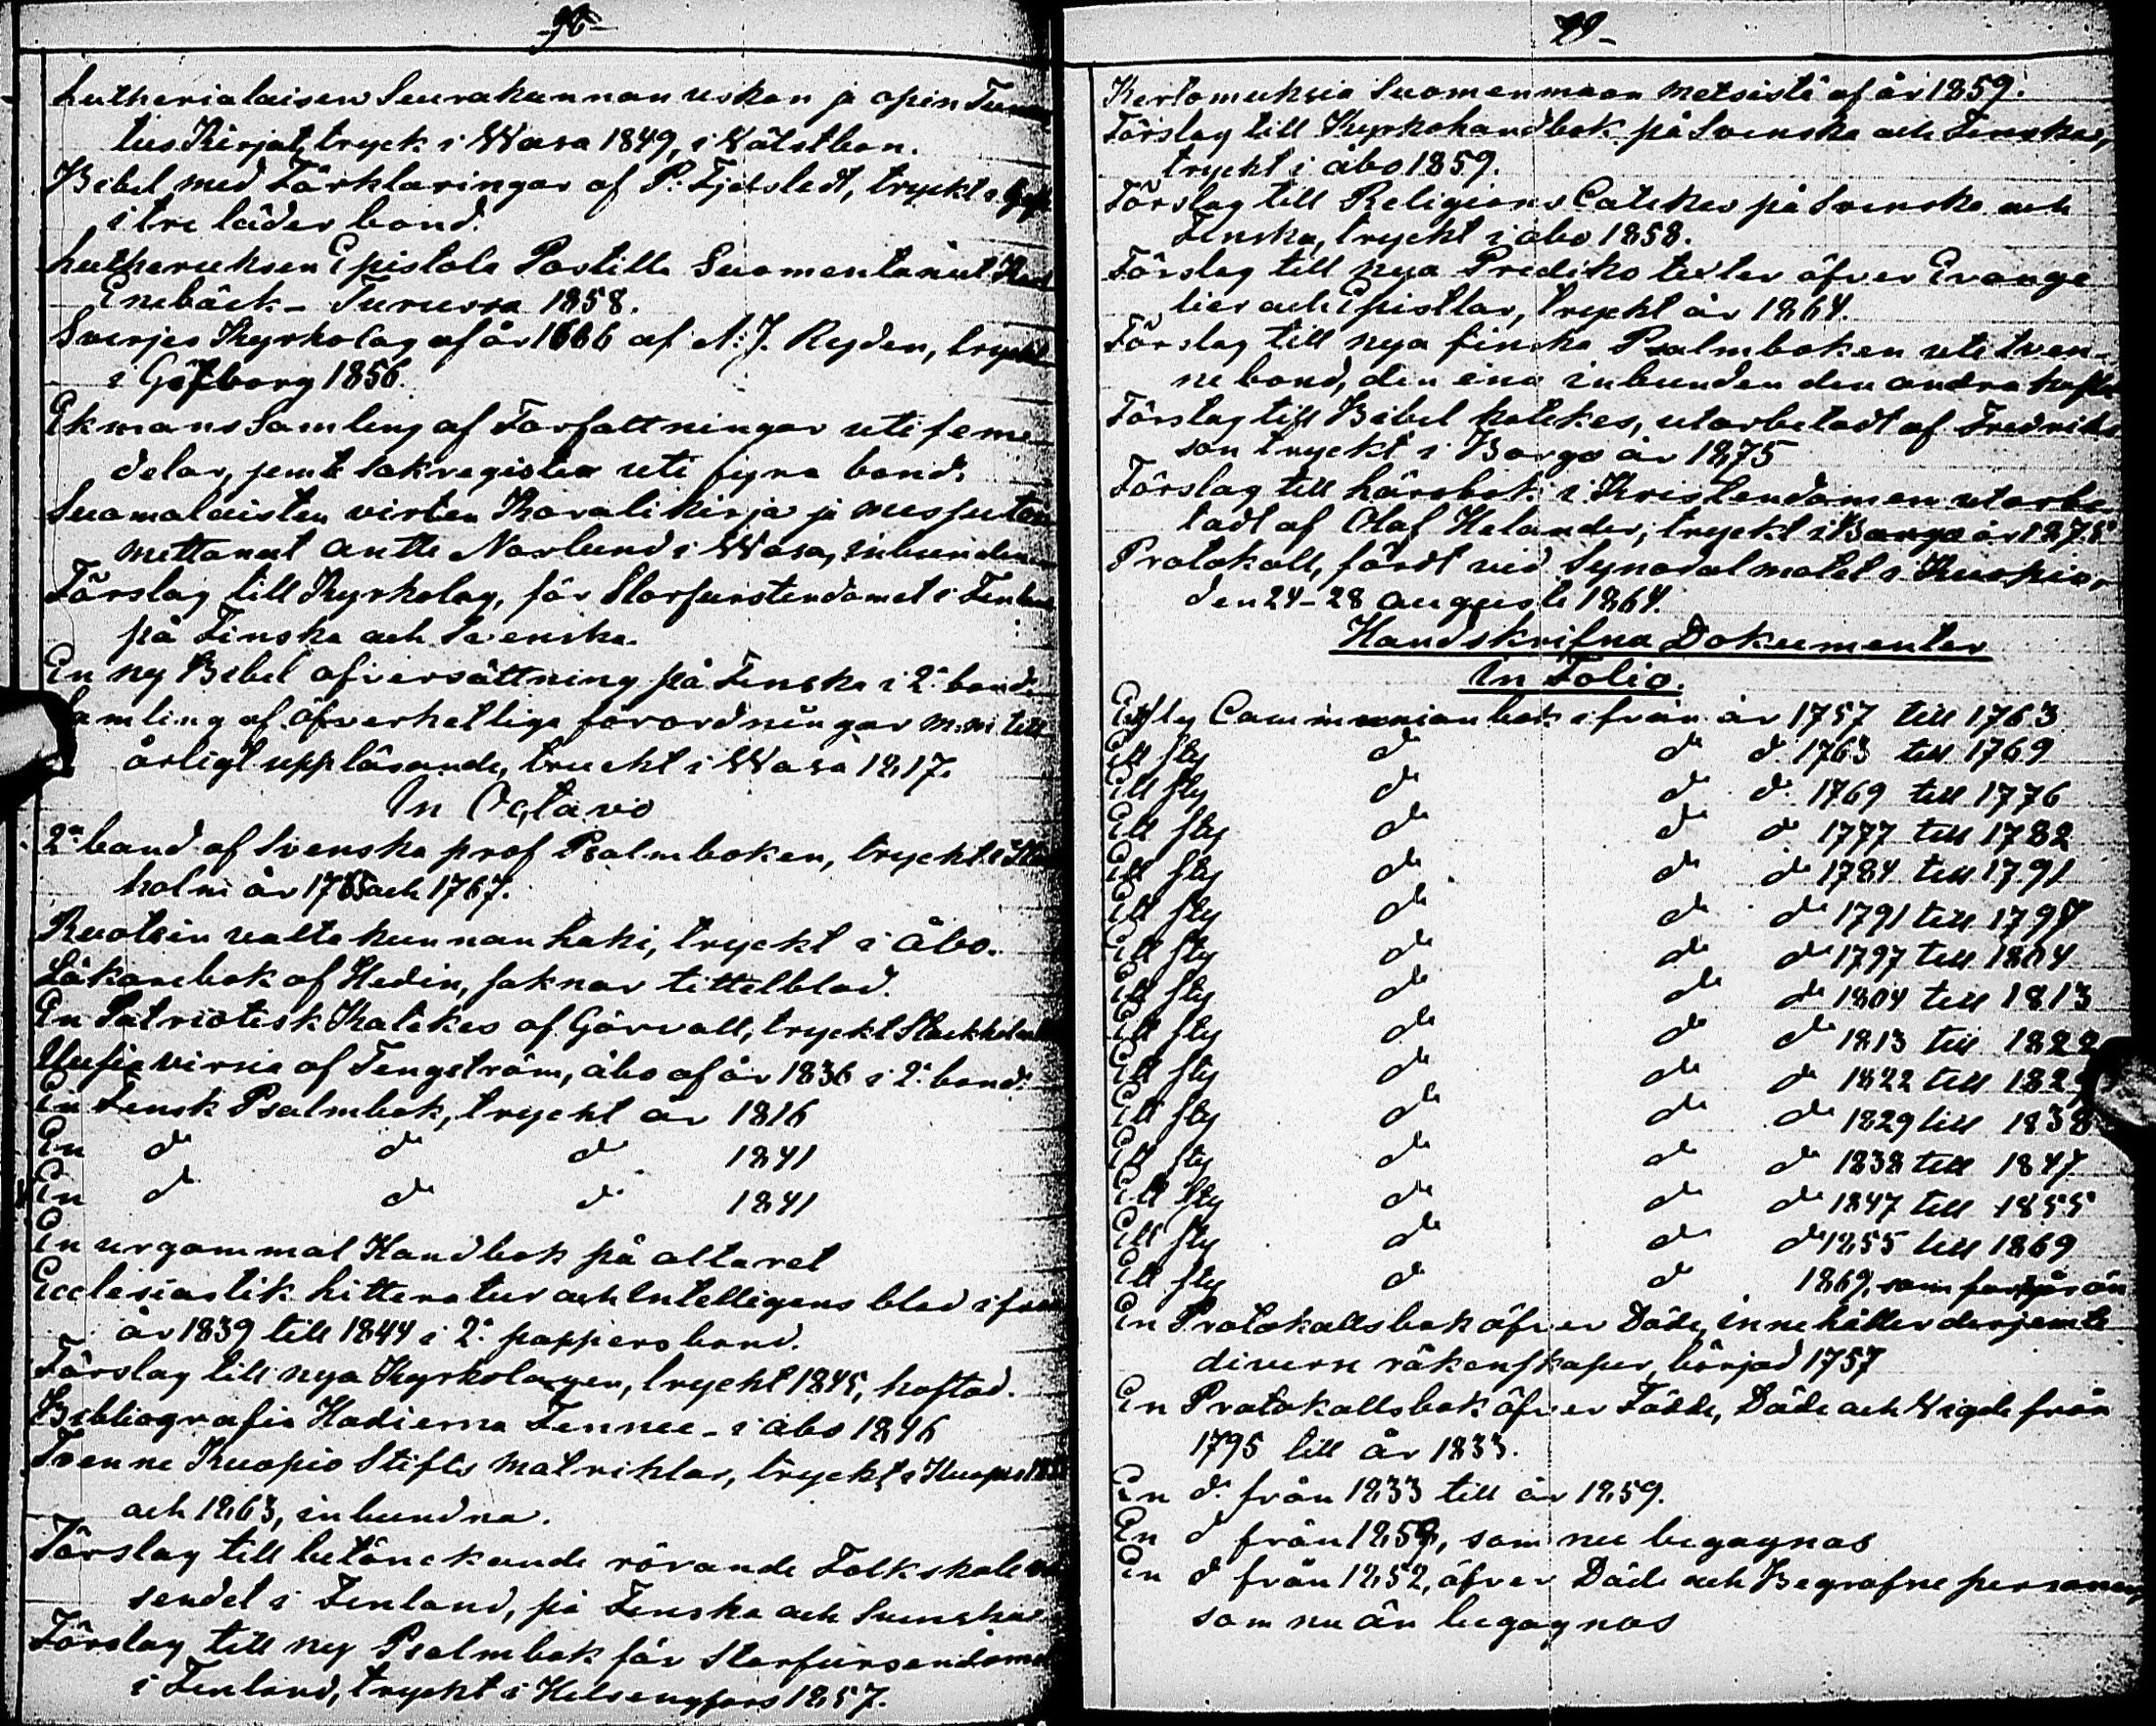 Lutherialaisen Seurakunnan uskon ja opin
tus Kirjat, tryck i Wasa 1849, i Wälstbon.
Bibel med Förklaringar af P. Fjelstedt, tryckt i
i tre läder band.
Lutheruksen Epistola Postilla Suomentanut
Enebäck - Turussa 1858.
Sverjes Kyrkolag af år 1686 af A. J. Ryden, tryckt
i Götborg 1856.
Ekmans Samling af Författningar uti feme
delar, jemte sakregister uti fyra band.
Suomalaisten virten Koralikirja ja messuton
mettanut Antti Norlund i Wasa, inbunden
Förslag till Kyrkolag, för Storfurstendömet i
på Finska och Svenska.
En ny Bibel öfversättning på Finska i 2. band
Samling af öfverhetliga förordningar m.m. till
årligt uppläsande, truckt i Wasa 1817.
In Octavo
2ne band af Svenska prof Psalmboken, tryckt i
holm år 1765 och 1767.
Ruotsin valtakunnan Laki, tryckt i Åbo.
Läkarebok af Hedin, saknar tittelblad.
En Patriotisk Katekes af Görvall, tryckt Stockholm
Uusia virsia af Tengström, Åbo af år 1836 i 2. band.
En Finsk Psalmbok, tryckt år 1816
En do do do 1841
En do do do 1841
En urgammal Handbok på altaret
Ecclesiastik Litteratur och Intelligens blad ifrån
år 1839 till 1844 i 2. pappersband.
Förslag till nya Kyrkolagen, tryckt 1845, häftad.
Bibliografia Hodierna Fennie - i Åbo 1846
Tvenne Kuopio Stifts matriklar, tryckt i Kuopio
och 1863, inbundna.
Förslag till betänckande rörande Folkskole
sendet i Finland, på Finska och Svenska
Förslag till ny Psalmbok för Storfursendömet
i Finland, tryckt i Helsingfors 1857.
99
Kertomuksia Suomenmaan metsistä af år 1859.
Förslag till Kyrkohandbok på Svenska och Finska,
tryckt i åbo 1859.
Förslag till Religions Catekes på Svenska och
Finska, tryckt i åbo 1858.
Förslag till nya Prediko texter öfver Evange
lier och Epistlar, tryckt år 1864.
Förslag till nya finska Psalmboken uti tven-
ne band, den ena inbunden den andra häftad
Förslag till Bibel katekes, utarbetadt af Fredriks
son tryckt i Borgo år 1875
Förslag till Lärobok i Kristendomen utarbe
tadt af Olaf Helander, tryckt i Borgo år 1878
Protokoll, fördt vid Synodalmötet i Kuopio,
den 24-28 augusti 1864.
Handskrifna Dokumenter
In Folio.
Ett sty Communion bok ifrån år 1757 till 1763
Ett sty do do do 1763 till 1769
Ett sty do do do 1769 till 1776
Ett sty do do do 1777 till 1782
Ett sty do do do 1784 till 1791
Ett sty do do do 1791 till 1797
Ett sty do do do 1797 till 1804
Ett sty do do do 1804 till 1813
Ett sty do do do 1813 till 1822
Ett sty do do do 1822 till 1829
Ett sty do do do 1829 till 1838
Ett sty do do do 1838 till 1847
Ett sty do do do 1847 till 1855
Ett sty do do do 1855 till 1869
Ett sty do do 1869, som fortgår än
En Protokollsbok öfver Döde, innehåller derjemte
diverse räkenskaper, börjad 1757
En Protokollsbok öfver Födde, Döde och Vigde från
1795 till år 1833.
En do från 1833 till år 1859.
En do från 1859, som nu begagnas
En do från 1852, öfver Döde och Begrafne personer,
som nu än begagnas